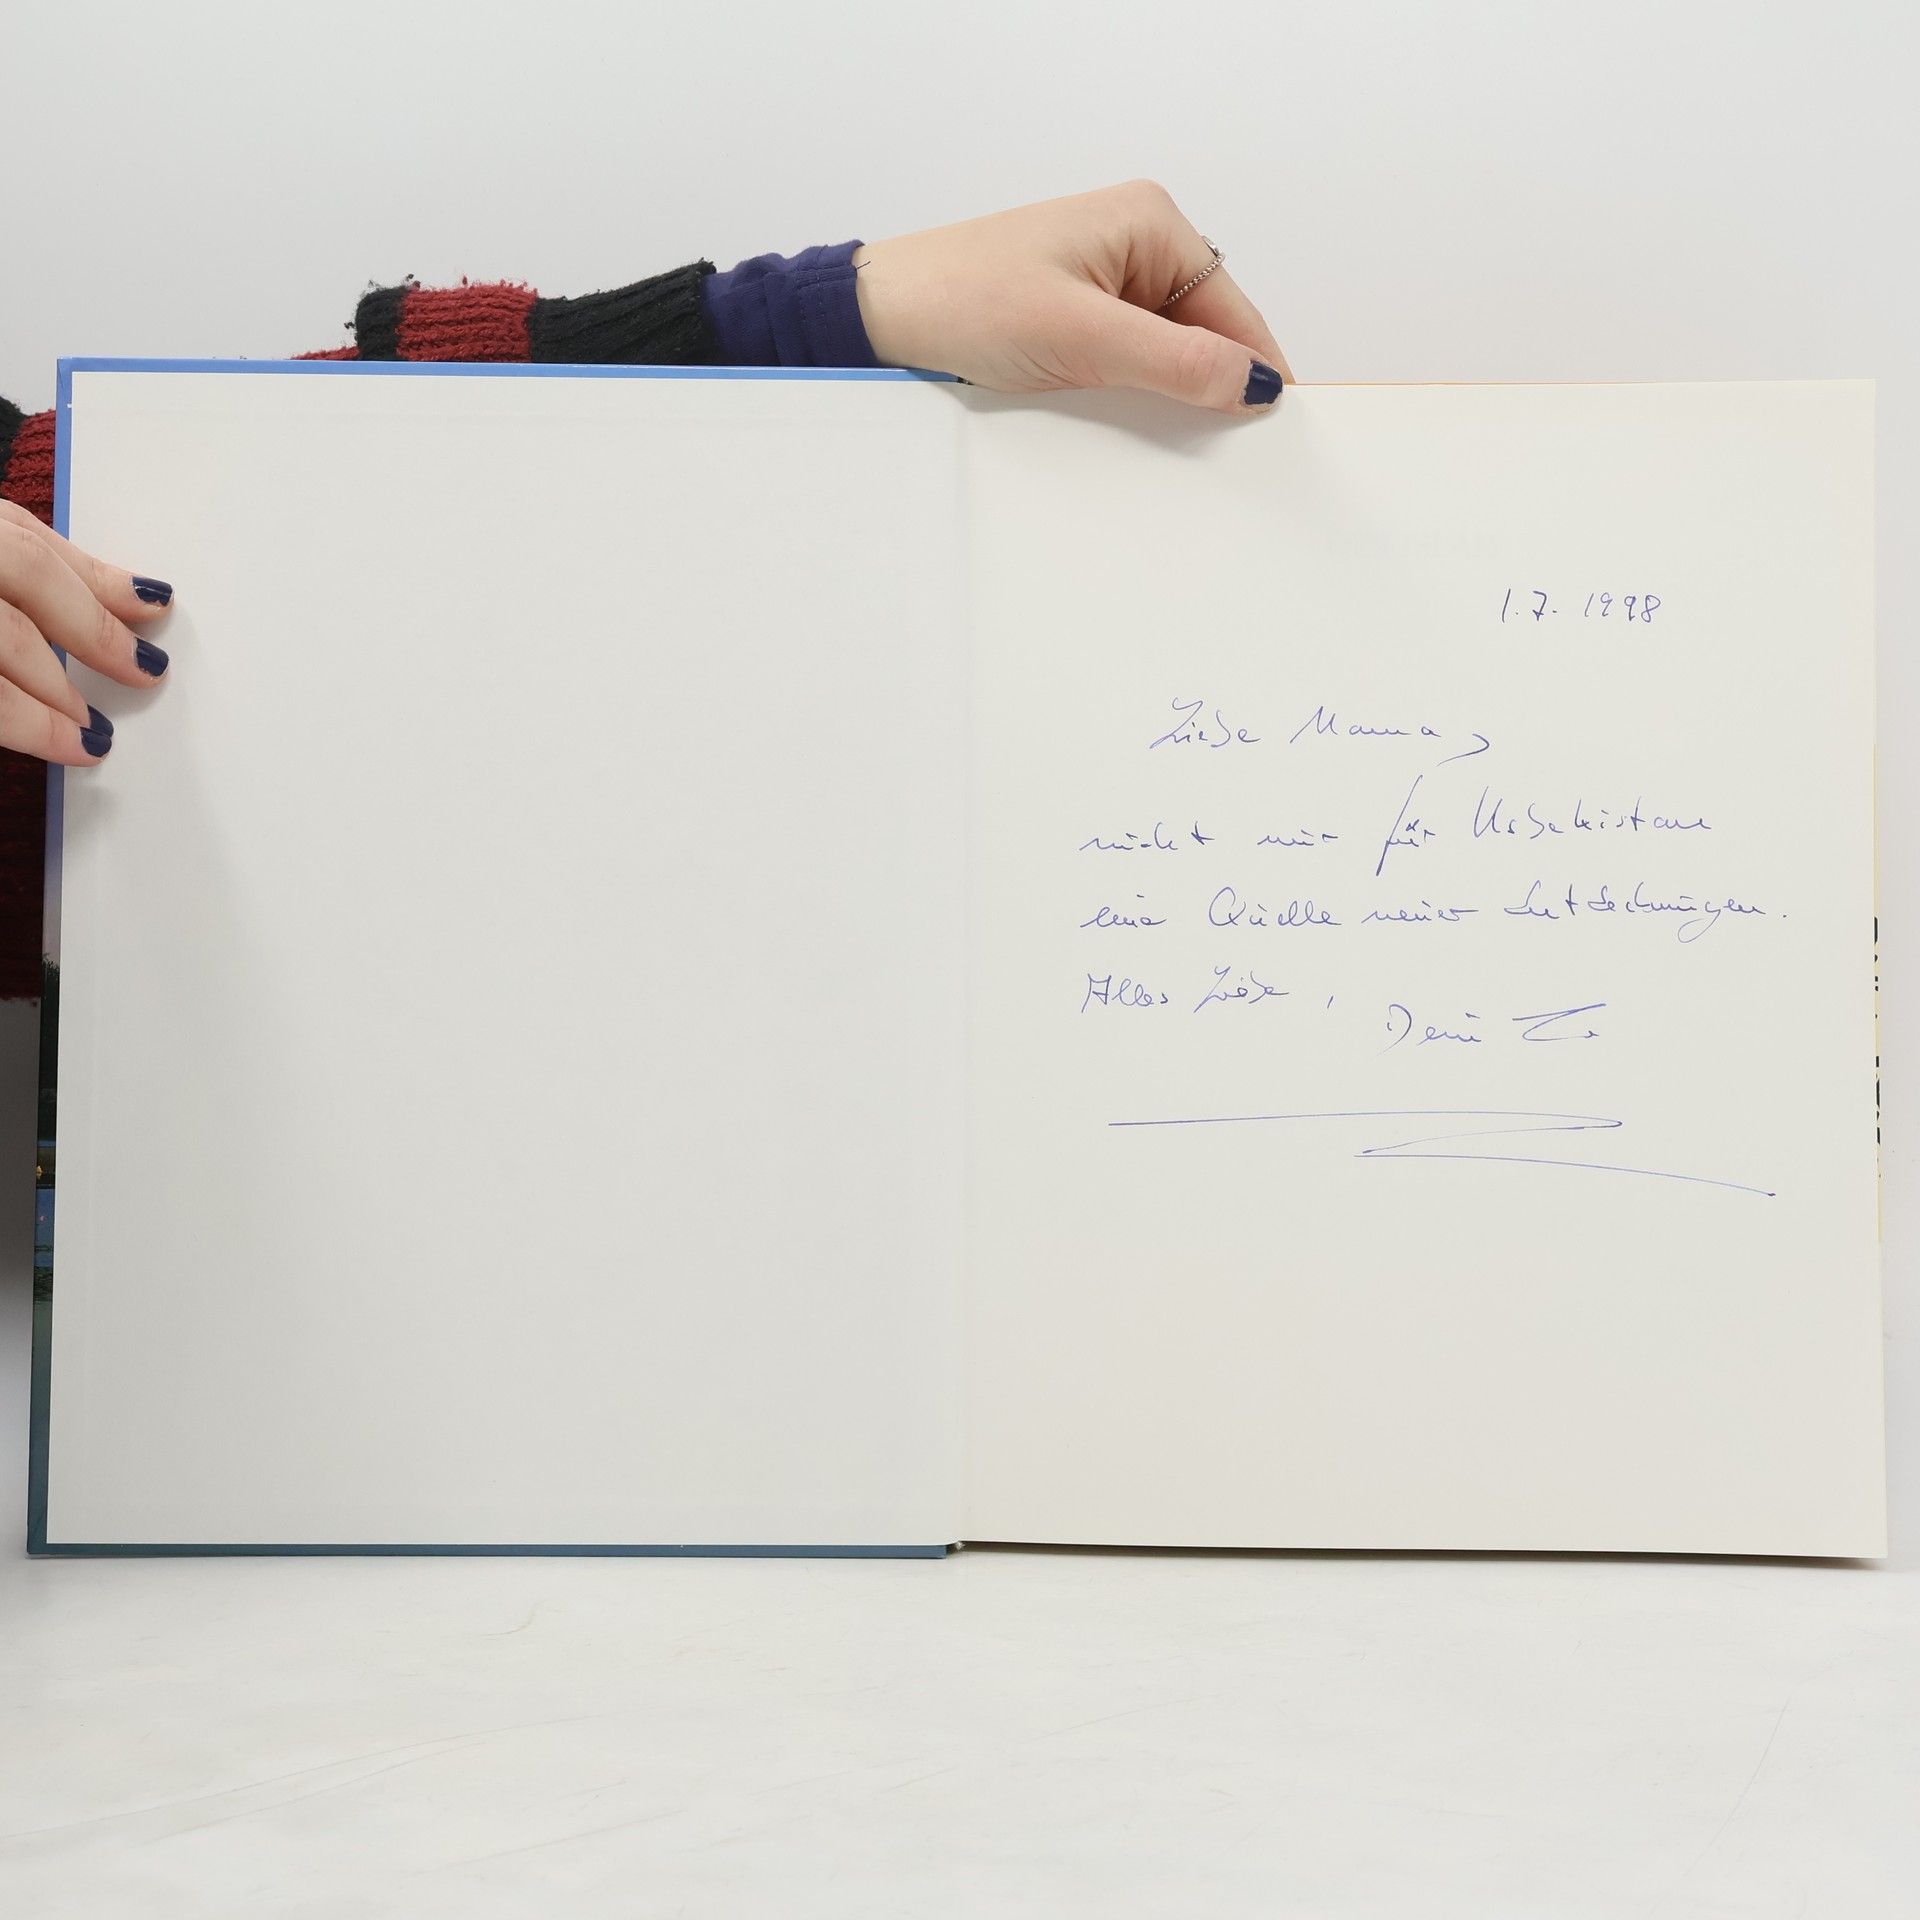 1.7. 1998
Liebe Mama,
nicht nur für Usbekistan
eine Quelle neuer Entdeckungen.
Alles Liebe,
Dein